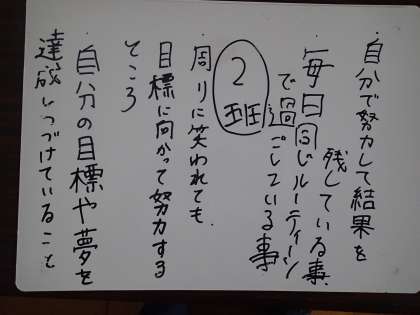 ・自分で努力して結果を
残している事
・毎日同じルーティーン
で過ごしている事
2班
・周りに笑われても
目標に向かって努力する
ところ
・自分の目標や夢を
達成しつづけていること